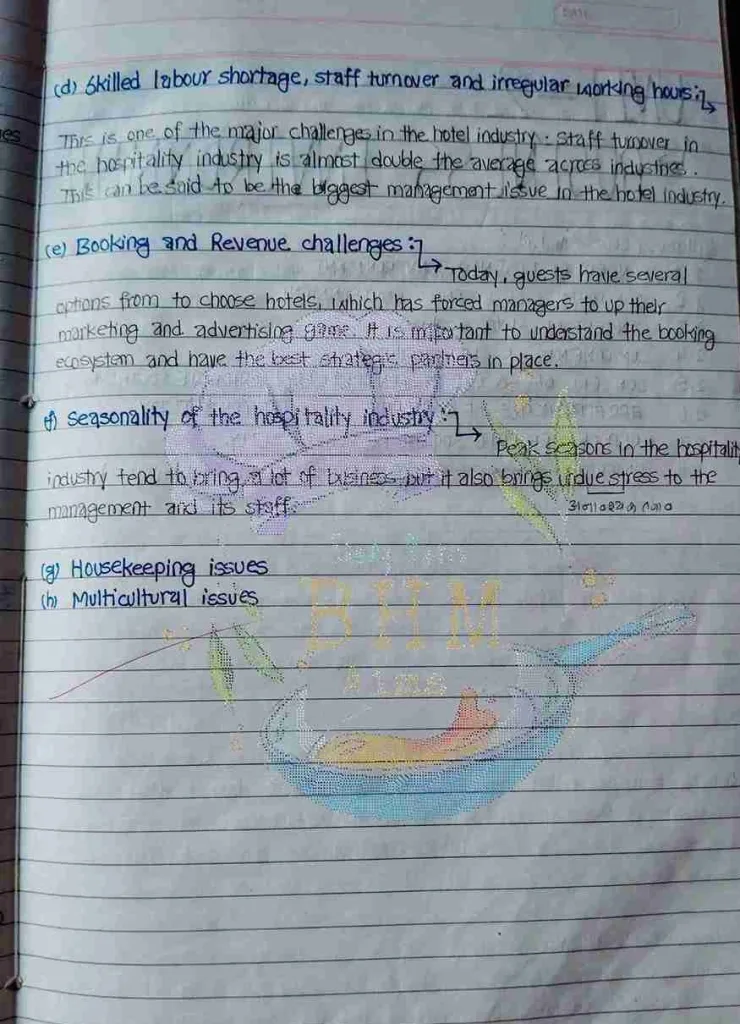 DATE
(d) Skilled labour shortage, staff turnover and irregular working hours:
This is one of the major challenges in the hotel industry. Staff turnover in
the hospitality industry is almost double the average across industries.
This can be said to be the biggest management issue in the hotel industry.
(e) Booking and Revenue challenges:
Today, guests have several
options from to choose hotels, which has forced managers to up their
marketing and advertising game. It is important to understand the booking
ecosystem and have the best strategic partners in place.
(f) Seasonality of the hospitality industry:
Peak seasons in the hospitality
industry tend to bring a lot of business but it also brings undue stress to the
management and its staff.
(g) Housekeeping issues
(h) Multicultural issues
BHM
Aims